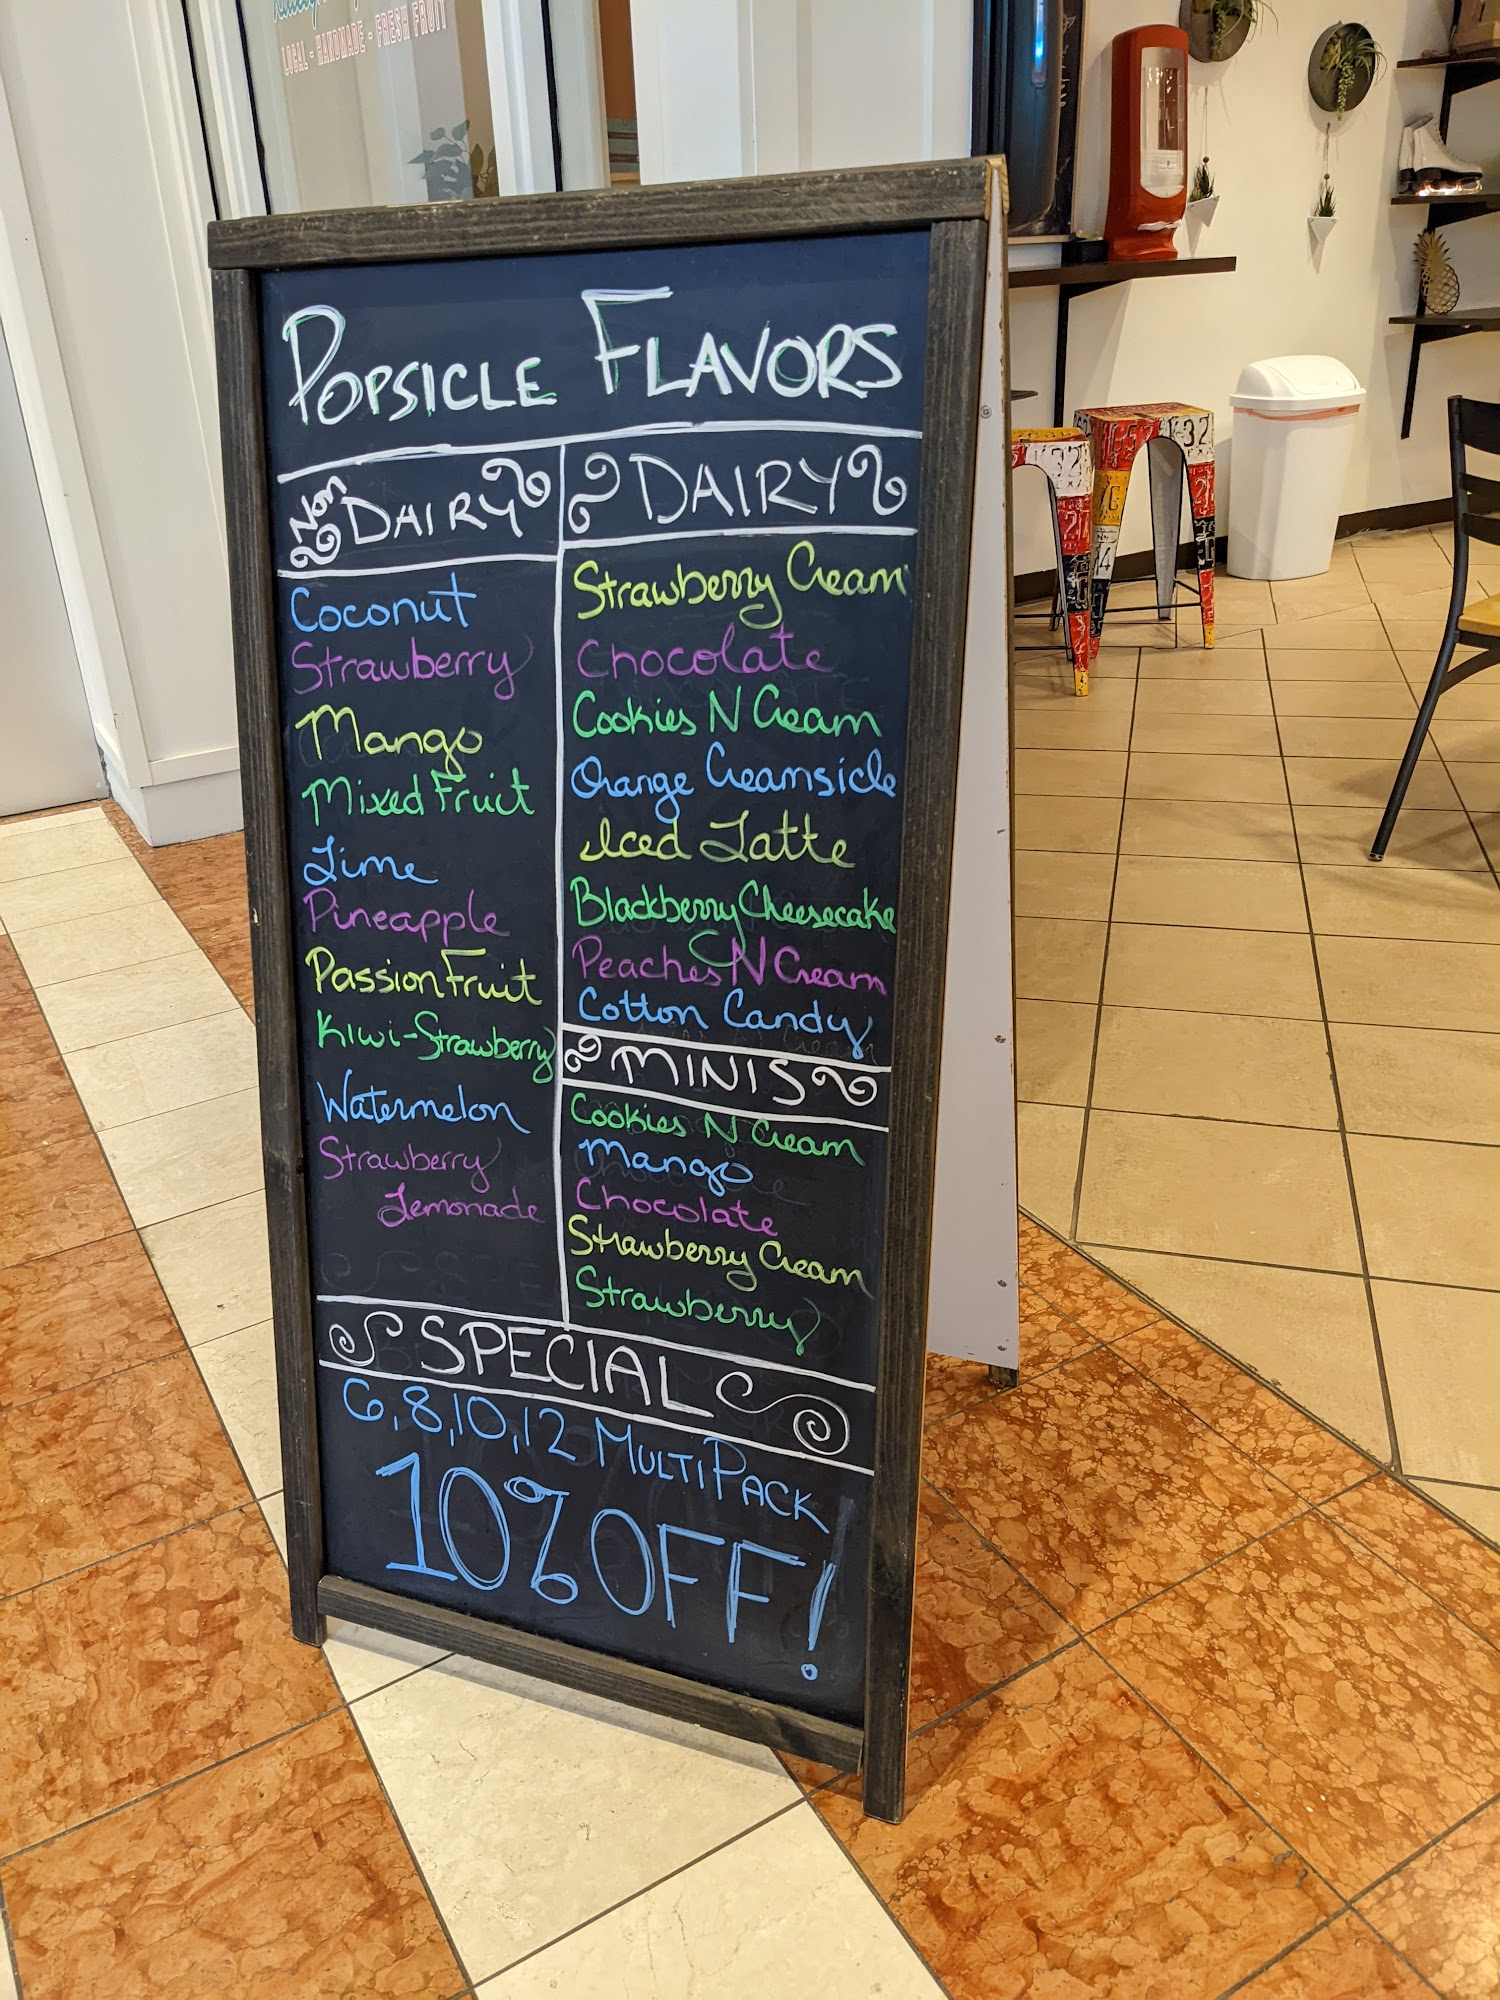 LOCAL - HANDMADE - FRESH FRUIT
POPSICLE FLAVORS
Non DAIRY
Coconut
Strawberry
Mango
Mixed Fruit
Lime
Pineapple
Passion Fruit
Kiwi-Strawberry
Watermelon
Strawberry
Lemonade
DAIRY
Strawberry Cream
Chocolate
Cookies N Cream
Orange Creamsicle
Iced Latte
Blackberry Cheesecake
Peaches N Cream
Cotton Candy
MINIS
Cookies N Cream
Mango
Chocolate
Strawberry Cream
Strawberry
SPECIAL
6, 8, 10, 12 MULTIPACK
10% OFF!